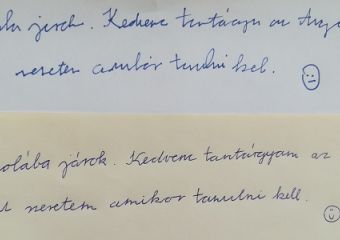 ola járok. Kedvenc tantárgyam az Ang
szeretem amikor tanulni kell.
olába járok. Kedvenc tantárgyam az
szeretem amikor tanulni kell.